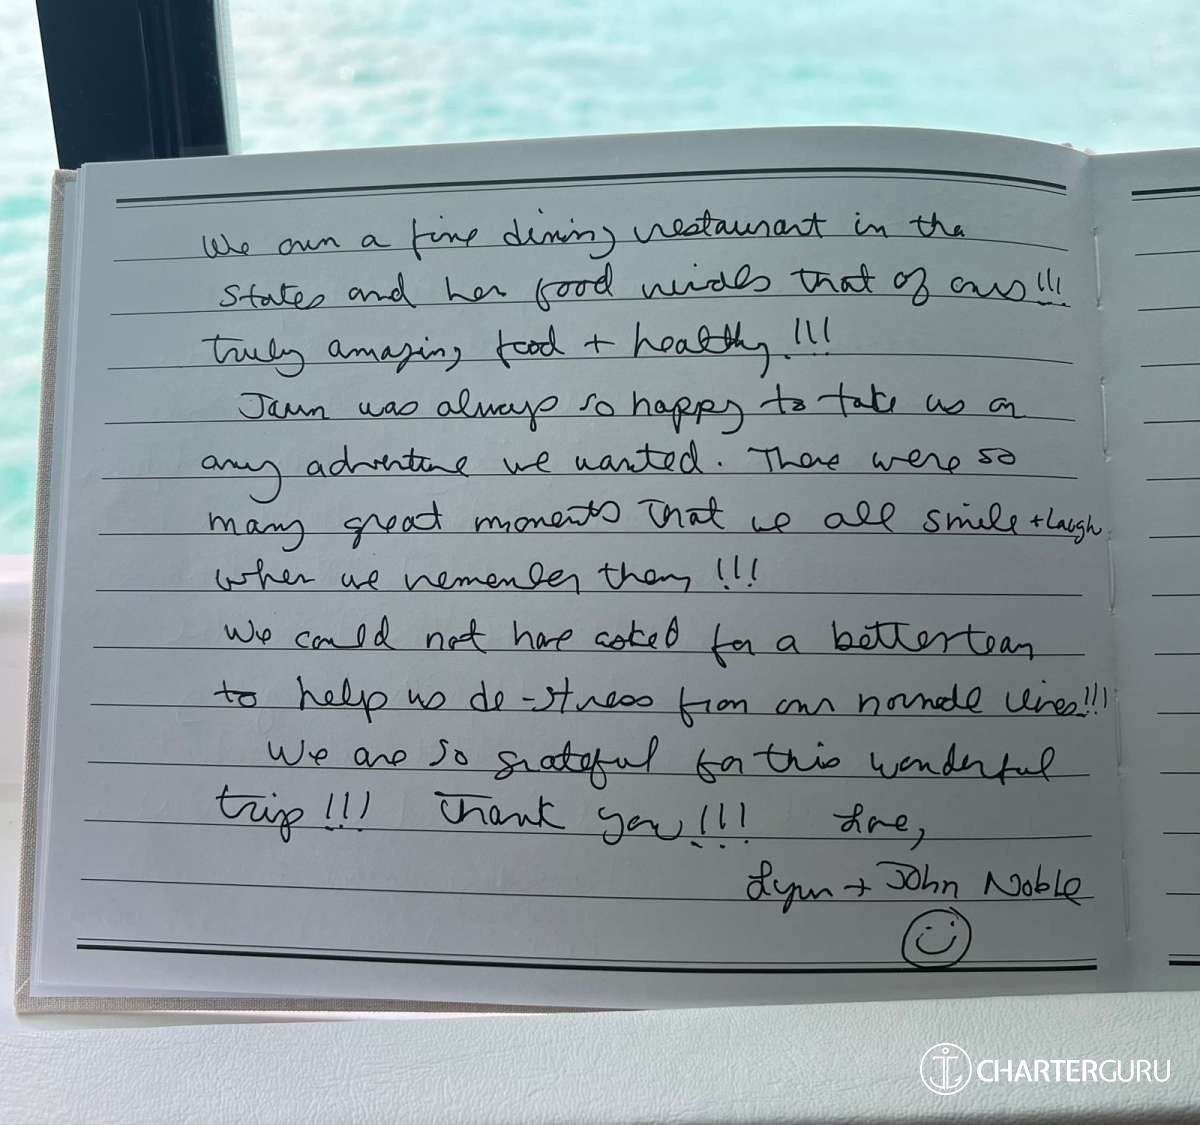 We own a fine dining restaurant in the
States and her food rivals that of ours!!!
truly amazing food + healthy!!!
was always so happy to take us on
any adventure we wanted. There were so
many great moments that we all smile + laugh
when we remember them!!!
We could not have asked for a better team
to help us de-stress from our normal lives!!!
We are so grateful for this wonderful
trip!!! Thank you!!! Love,
Lynn + John Noble
CHARTERGURU